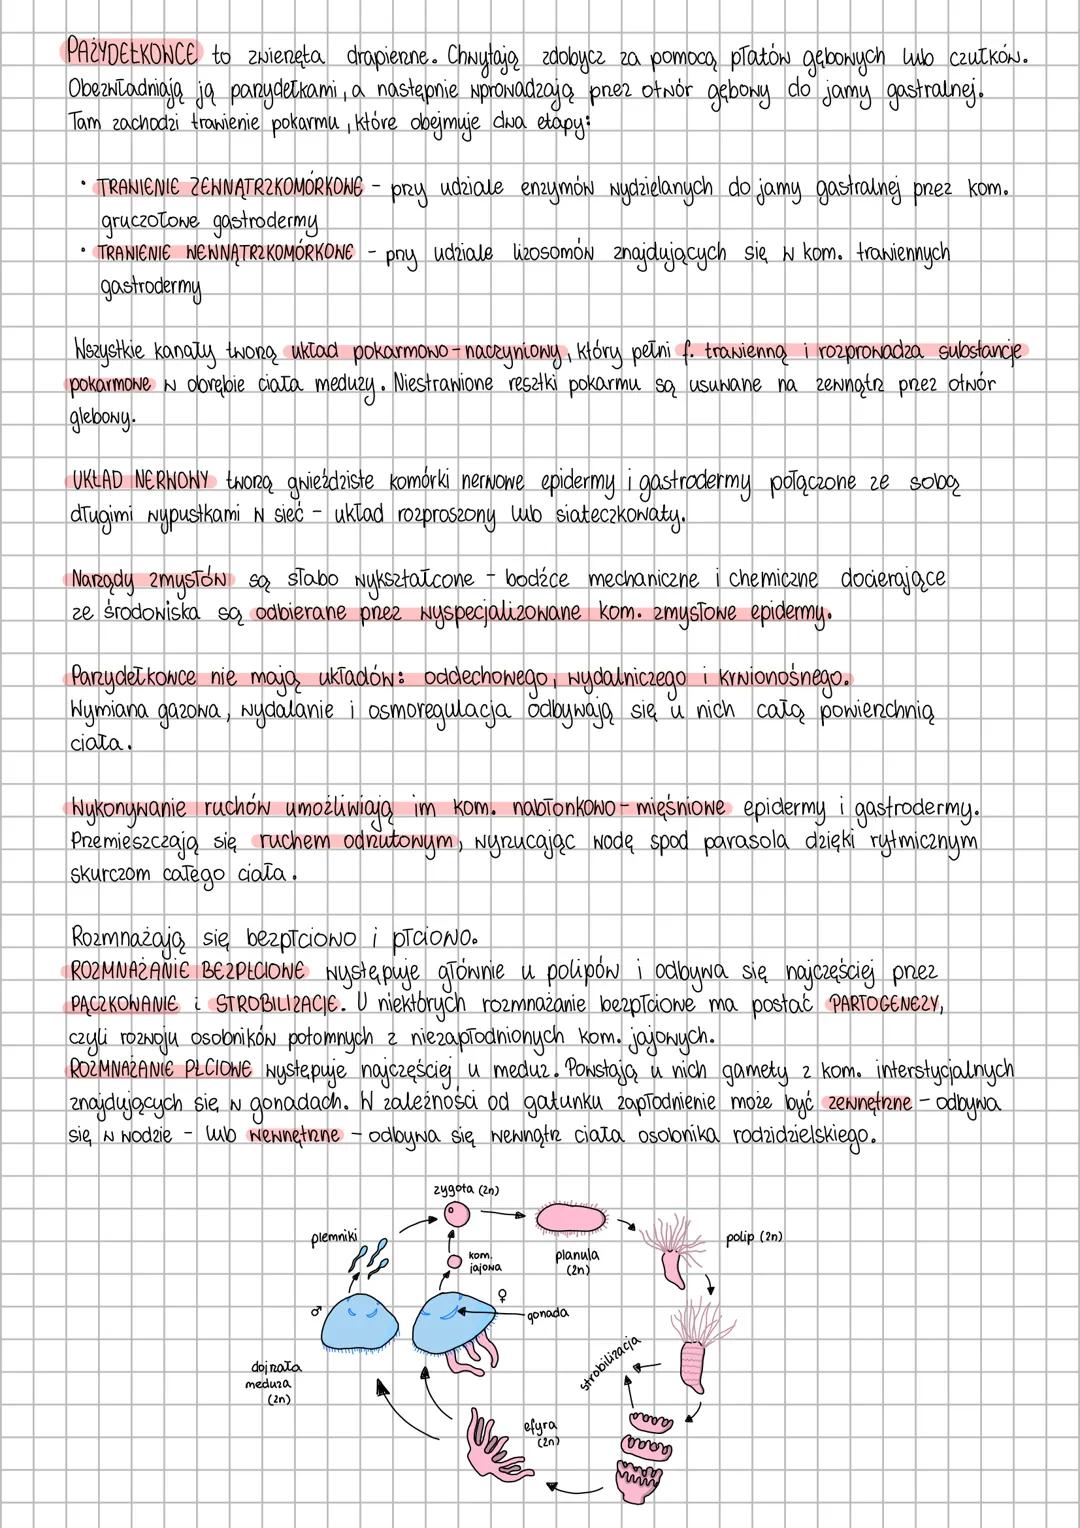 PAŻYDEŁKOWCE to zwierzęta drapieżne. Chwytają zdobycz za pomocą płatów gębowych lub czułków.
Obezwładniają ją parzydełkami, a następnie wprowadzają przez otwór gębowy do jamy gastralnej.
Tam zachodzi trawienie pokarmu, które obejmuje dwa etapy:
• TRAWIENIE ZEWNĄTRZKOMÓRKOWE - przy udziale enzymów wydzielanych do jamy gastralnej przez kom.
gruczołowe gastrodermy
• TRAWIENIE WEWNĄTRZKOMÓRKOWE - przy udziale lizosomów znajdujących się w kom. trawiennych
gastrodermy
Wszystkie kanały tworzą układ pokarmowo-naczyniowy, który pełni f. trawienną i rozprowadza substancje
pokarmowe w obrębie ciała meduzy. Niestrawione resztki pokarmu są usuwane na zewnątrz przez otwór
glebowy.
UKŁAD NERWOWY tworzą gwieździste komórki nerwowe epidermy i gastrodermy połączone ze sobą
długimi wypustkami w sieć - układ rozproszony lub siateczkowaty.
Narządy zmysłów są słabo wykształcone - bodźce mechaniczne i chemiczne docierające
ze środowiska są odbierane przez wyspecjalizowane kom. zmysłowe epidermy.
Parzydełkowce nie mają układów: oddechowego, wydalniczego i krwionośnego.
Wymiana gazowa, wydalanie i osmoregulacja odbywają się u nich całą powierzchnią
ciała.
Wykonywanie ruchów umożliwiają im kom. nabłonkowo-mięśniowe epidermy i gastrodermy.
Przemieszczają się ruchem odrzutowym, wyrzucając wodę spod parasola dzięki rytmicznym
skurczom całego ciała.
Rozmnażają się bezpłciowo i płciowo.
ROZMNAŻANIE BEZPŁCIOWE występuje głównie u polipów i odbywa się najczęściej przez
PĄCZKOWANIE i STROBILIZACJĘ. U niektórych rozmnażanie bezpłciowe ma postać PARTOGENEZY,
czyli rozwoju osobników potomnych z niezapłodnionych kom. jajowych.
ROZMNAŻANIE PŁCIOWE występuje najczęściej u meduz. Powstają u nich gamety z kom. interstycjalnych
znajdujących się w gonadach. W zależności od gatunku zapłodnienie może być zewnętrzne - odbywa
się w wodzie - lub wewnętrzne - odbywa się wewnątrz ciała osobnika rodzidzielskiego.
zygota (2n)
plemniki
kom.
jajowa
planula
(2n)
polip (2n)
♂
♀
gonada
dojrzała
meduza
(2n)
strobilizacja
efyra
(2n)